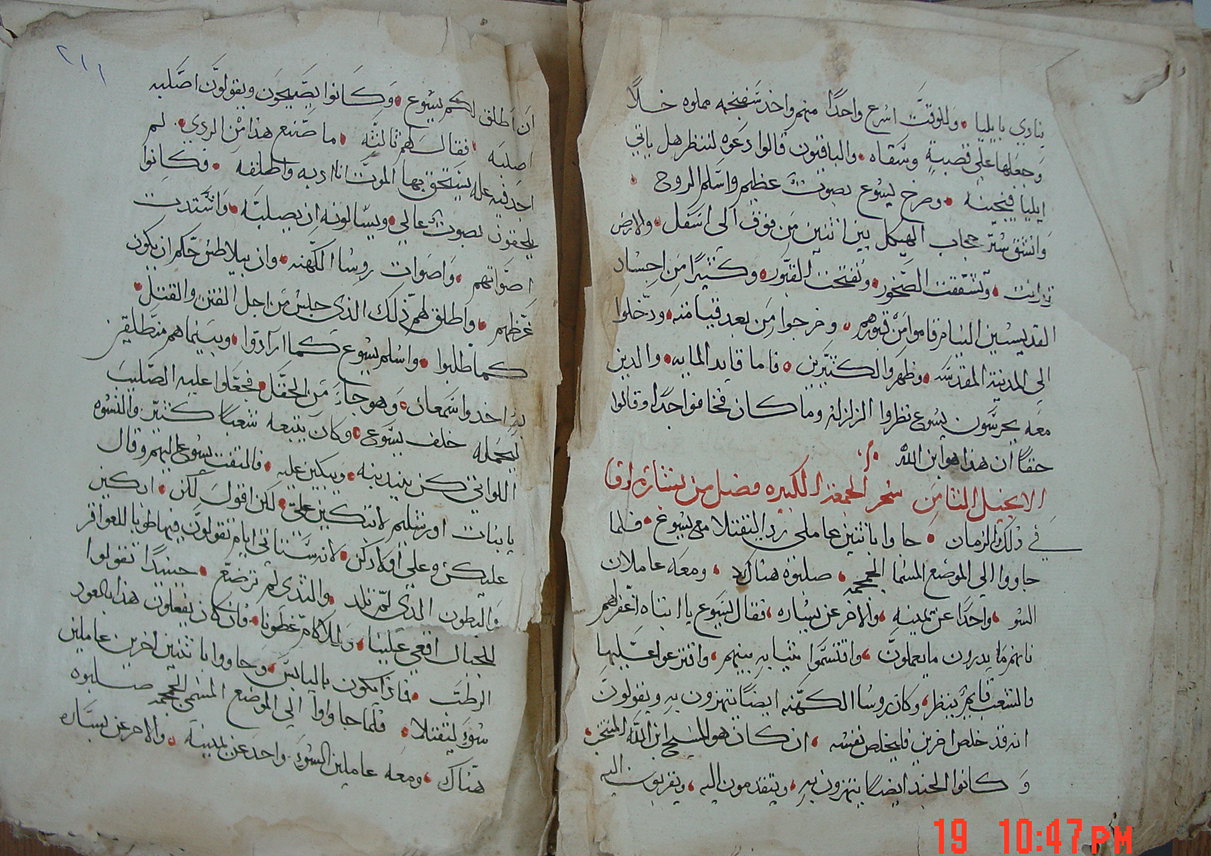 ينادي يا يليا • وللوقت اسرع واحدًا منهم واخذ سفنجه مملوه خلًا
وجعلها على قصبة وسقاه • والباقيون قالوا دعوه لننظر هل ياتي
ايليا فينجيه • وصرخ يسوع بصوت عظيم واسلم الروح •
وانشق ستر حجاب الهيكل بين اثنتين من فوق الى اسفل • والارض
تزلزلت • وتشققت الصخور • وتفتحت القبور • وكثيرًا من اجساد
القديسين النيام قاموا من قبورهم • وخرجوا من بعد قيامته • ودخلوا
الى المدينة المقدسه • وظهروا لكثيرين • فاما قايد المايه • والذين
معه يحرسون يسوع نظروا الزلزلة وما كان فخافوا جدًا وقالوا
حقًا ان هذا هو ابن الله
الانجيل الثامن سحر الجمعة الكبيره فصل من بشارة لوقا
في ذلك الزمان • جاوا باثنين عاملي ردي التقتلا مع يسوع • فلما
جاووا الى الموضع المسما الجمجمه • صلبوه هناك • ومعه عاملان
السو • واحدًا عن يمينه • والاخر عن يساره • فقال يسوع يا ابتاه اغفر لهم
فانهم ما يدرون ما يعملون • واقتسموا ثيابه بينهم • واقترعوا عليها
والشعب قايم ينظر • وكان روسا الكهنه ايضًا يتهزون به ويقولون
انه قد خلص اخرين فليخلص نفسه • ان كان هو المسيح ابن الله المنتخب •
و كانوا الجند ايضًا يتهزون به • ويتقدمون اليه • ويقربون اليه
٢١١
ان اطلق لكم يسوع • وكانوا يصيحون ويقولون اصلبه
اصلبه • فقال لهم ثالثة • ما صنع هذا من الردي • لم
اجد فيه عله يستحق بها الموت انا ادبه واطلقه • وكانوا
يلحقون بصوت عالي • ويسالونه ان يصلبه • واشتدت
اصواتهم • واصوات روسا الكهنه • وان بيلاطس حكم ان يكون
غرضهم • واطلق لهم ذلك الذي حبس من اجل الفتن والقتل •
كما طلبوا • واسلم يسوع كما ارادوا • وبينما هم منطلقين
به اخذوا سمعان • وهو جاء من الحقل • فجعلوا عليه الصليب
ليحمله خلف يسوع • وكان يتبعه شعبًا كثير والنسوه
اللواتي كن يندبنه • ويبكين عليه • فالتفت يسوع اليهم وقال
يا بنات اورشليم لا تبكين علي • لكن اقول لكن • ابكين
عليكن وعلى اولادكن • لانه ستاتي ايام تقولون فيها طوبا للعواقر
والبطون الذي لم تلد • والثدي لم ترضع • حينيذًا تقولوا
للجبال اقعي علينا • وللاكام غطونا • فان كان يفعلون هذا بالعود
الرطب • فماذا يكون باليابس • وجاووا باثنين اخرين عاملين
سوء ليقتلا • فلما جاووا الى الموضع المسمى الجمجمه صلبوه
هناك • ومعه عاملين السوء واحد عن يمينه • والاخر عن يساره